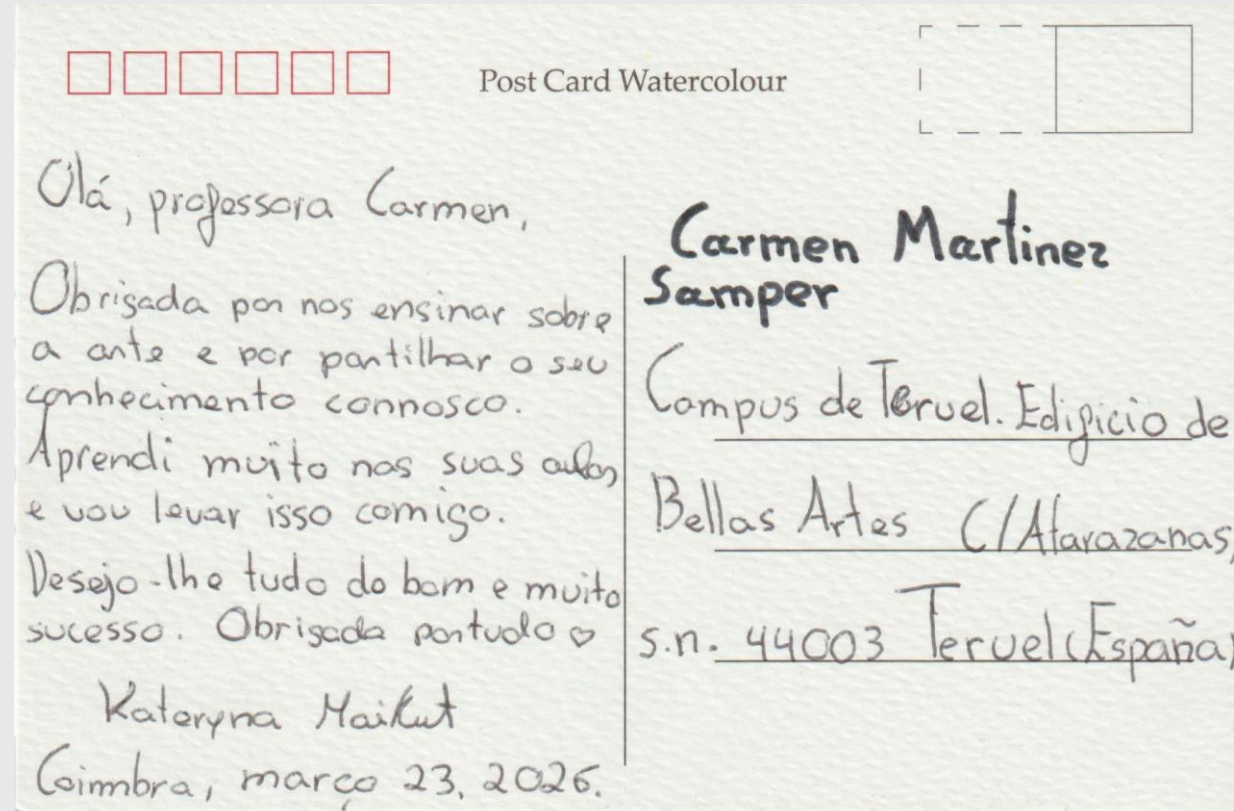 Post Card Watercolour
Olá, professora Carmen,
Obrigada por nos ensinar sobre
a arte e por partilhar o seu
conhecimento connosco.
Aprendi muito nas suas aulas,
e vou levar isso comigo.
Desejo-lhe tudo do bom e muito
sucesso. Obrigada por tudo ♡
Kateryna Maikut
Coimbra, março 23, 2026.
Carmen Martinez
Samper
Campus de Teruel. Edificio de
Bellas Artes C/Atarazanas,
s.n. 44003 Teruel (España)